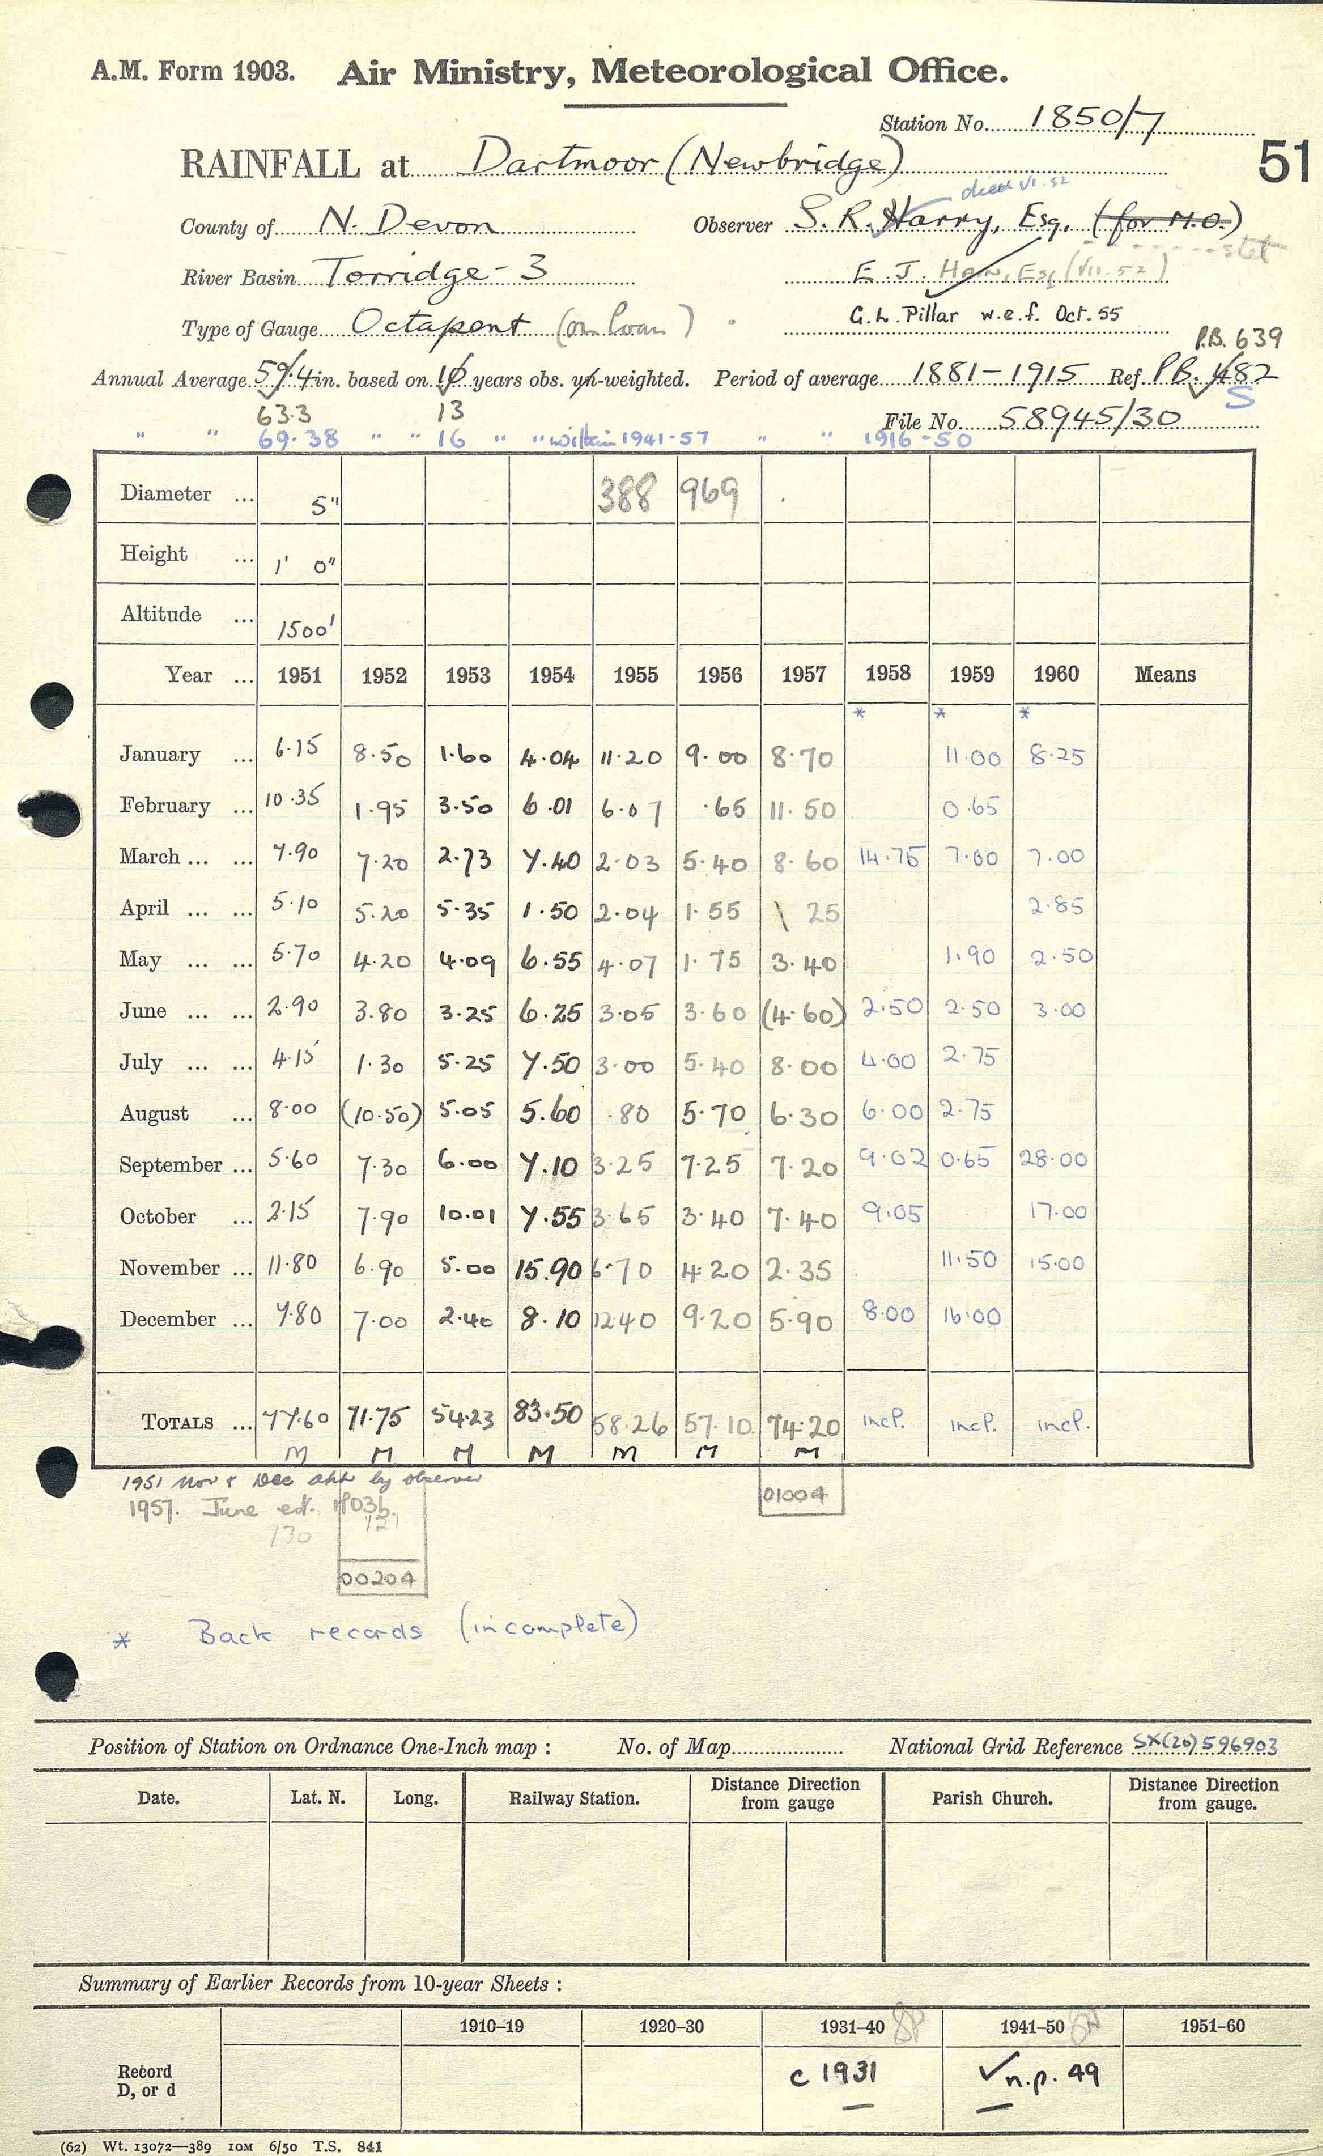 A.M. Form 1903. Air Ministry, Meteorological Office.
Station No. 1850/7
RAINFALL at Dartmoor (Newbridge)
51
died VI.52
County of N. Devon Observer S. R. Harry, Esq. (for M.O.)
stet
River Basin Torridge - 3 E. J. Ham, Esq (VII.52)
Type of Gauge Octapent (on loan) G. L. Pillar w.e.f. Oct. 55
P.B. 639
Annual Average 59.4 in. based on 10 years obs. un-weighted. Period of average 1881-1915 Ref. P.B. 482
63.3 13 S
File No. 58945/30
" " 69.38 " " 16 " " within 1941-57 " " 1916-50
Diameter ... 5" 388 969
Height ... 1' 0"
Altitude ... 1500'
Year ... 1951 1952 1953 1954 1955 1956 1957 1958 1959 1960 Means
* * *
January ... 6.15 8.50 1.60 4.04 11.20 9.00 8.70 11.00 8.25
February ... 10.35 1.95 3.50 6.01 6.07 .65 11.50 0.65
March ... ... 7.90 7.20 2.73 7.40 2.03 5.40 8.60 14.75 7.00 7.00
April ... ... 5.10 5.20 5.35 1.50 2.04 1.55 \ 25 2.85
May ... ... 5.70 4.20 4.09 6.55 4.07 1.75 3.40 1.90 2.50
June ... ... 2.90 3.80 3.25 6.25 3.05 3.60 (4.60) 2.50 2.50 3.00
July ... ... 4.15 1.30 5.25 7.50 3.00 5.40 8.00 4.00 2.75
August ... 8.00 (10.50) 5.05 5.60 .80 5.70 6.30 6.00 2.75
September ... 5.60 7.30 6.00 7.10 3.25 7.25 7.20 9.02 0.65 28.00
October ... 2.15 7.90 10.01 7.55 3.65 3.40 7.40 9.05 17.00
November ... 11.80 6.90 5.00 15.90 6.70 4.20 2.35 11.50 15.00
December ... 7.80 7.00 2.40 8.10 12.40 9.20 5.90 8.00 16.00
TOTALS ... 77.60 71.75 54.23 83.50 58.26 57.10 74.20 incp. incp. incp.
M M M M M M M
1951 Nov & Dec by observer
01004
1957. June est.
130
00204
* Back records (incomplete)
Position of Station on Ordnance One-Inch map : No. of Map National Grid Reference SX(20)596903
Date. Lat. N. Long. Railway Station. Distance Direction from gauge Parish Church. Distance Direction from gauge.
Summary of Earlier Records from 10-year Sheets :
1910-19 1920-30 1931-40 1941-50 1951-60
Record D, or d c 1931 ✓n.p. 49
(62) Wt. 13072—389 10M 6/50 T.S. 841